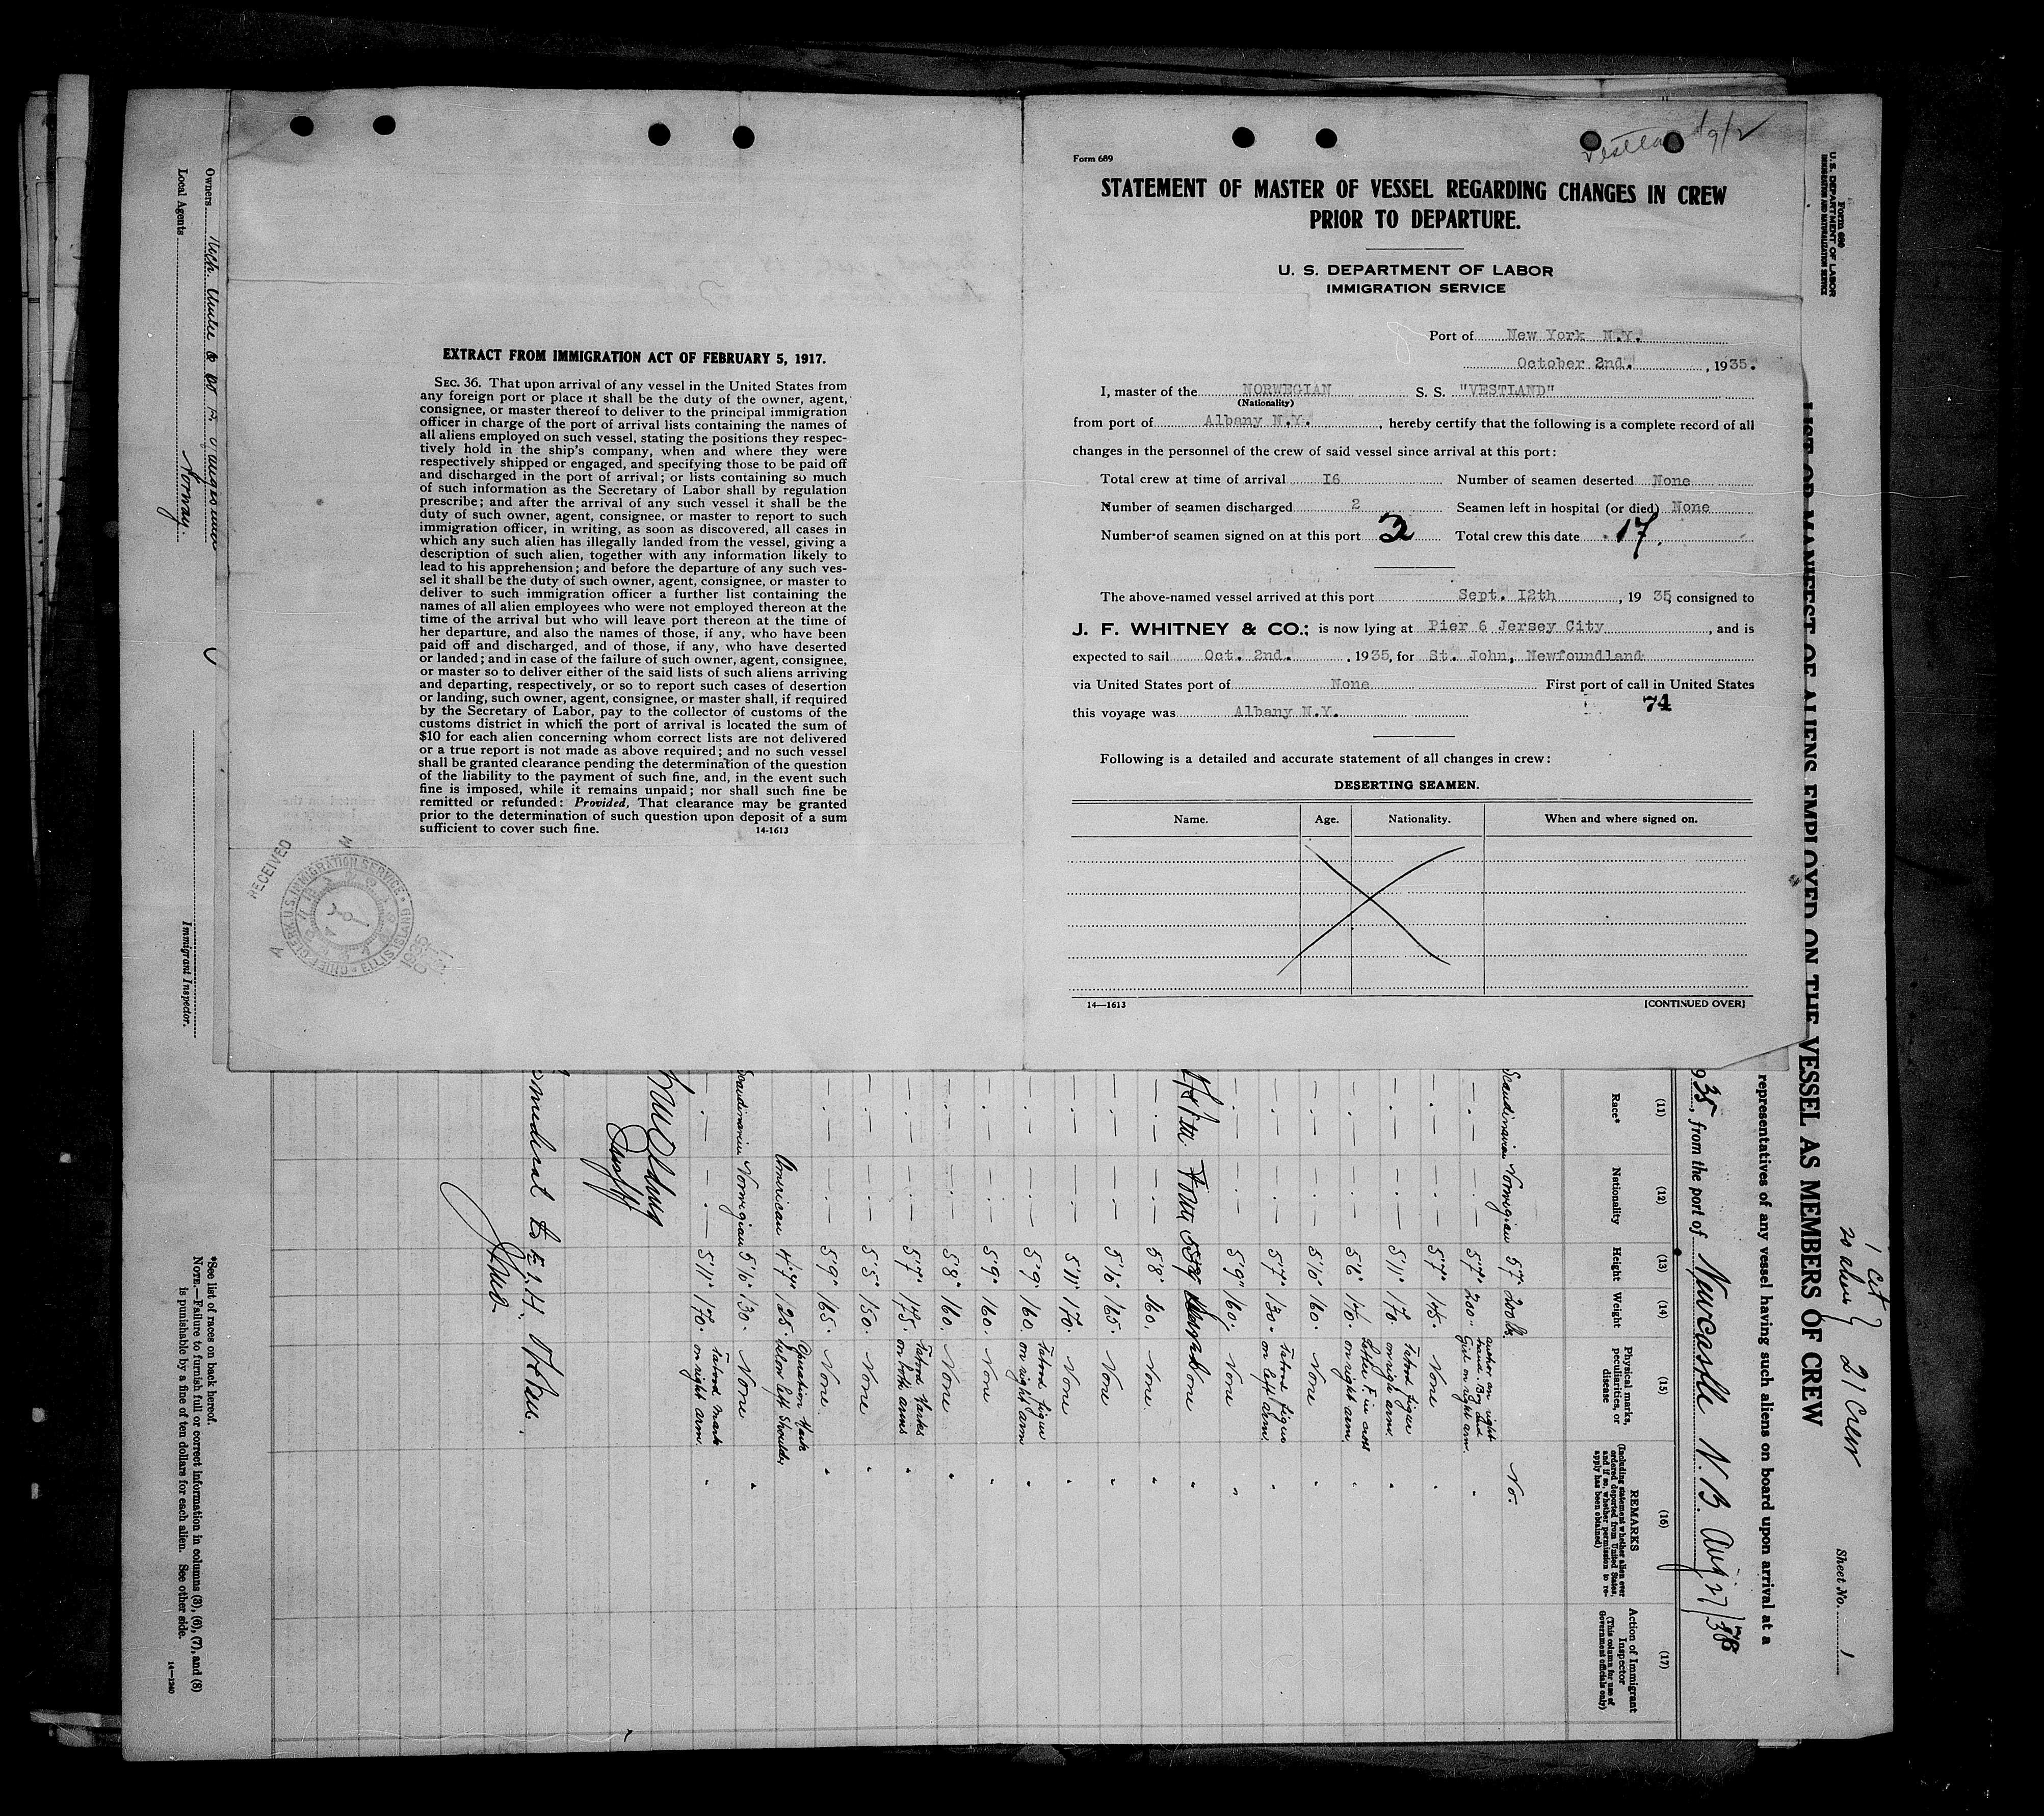 Form 689
STATEMENT OF MASTER OF VESSEL REGARDING CHANGES IN CREW
PRIOR TO DEPARTURE.
U. S. DEPARTMENT OF LABOR
IMMIGRATION SERVICE
Port of New York N.Y.
October 2nd. , 1935.
I, master of the NORWEGIAN S. S. "VESTLAND"
(Nationality)
from port of Albany N.Y. , hereby certify that the following is a complete record of all
changes in the personnel of the crew of said vessel since arrival at this port:
Total crew at time of arrival I6 Number of seamen deserted None
Number of seamen discharged 2 Seamen left in hospital (or died) None
Number of seamen signed on at this port 3 Total crew this date 17.
The above-named vessel arrived at this port Sept. I2th , 19 35, consigned to
J. F. WHITNEY & CO.; is now lying at Pier 6 Jersey City , and is
expected to sail Oct. 2nd. , 1935, for St. John, Newfoundland
via United States port of None First port of call in United States
this voyage was Albany N.Y. 74
Following is a detailed and accurate statement of all changes in crew:
DESERTING SEAMEN.
Name. Age. Nationality. When and where signed on.
14—1613 [CONTINUED OVER]
EXTRACT FROM IMMIGRATION ACT OF FEBRUARY 5, 1917.
SEC. 36. That upon arrival of any vessel in the United States from
any foreign port or place it shall be the duty of the owner, agent,
consignee, or master thereof to deliver to the principal immigration
officer in charge of the port of arrival lists containing the names of
all aliens employed on such vessel, stating the positions they respec-
tively hold in the ship's company, when and where they were
respectively shipped or engaged, and specifying those to be paid off
and discharged in the port of arrival; or lists containing so much
of such information as the Secretary of Labor shall by regulation
prescribe; and after the arrival of any such vessel it shall be the
duty of such owner, agent, consignee, or master to report to such
immigration officer, in writing, as soon as discovered, all cases in
which any such alien has illegally landed from the vessel, giving a
description of such alien, together with any information likely to
lead to his apprehension; and before the departure of any such ves-
sel it shall be the duty of such owner, agent, consignee, or master to
deliver to such immigration officer a further list containing the
names of all alien employees who were not employed thereon at the
time of the arrival but who will leave port thereon at the time of
her departure, and also the names of those, if any, who have been
paid off and discharged, and of those, if any, who have deserted
or landed; and in case of the failure of such owner, agent, consignee,
or master so to deliver either of the said lists of such aliens arriving
and departing, respectively, or so to report such cases of desertion
or landing, such owner, agent, consignee, or master shall, if required
by the Secretary of Labor, pay to the collector of customs of the
customs district in which the port of arrival is located the sum of
$10 for each alien concerning whom correct lists are not delivered
or a true report is not made as above required; and no such vessel
shall be granted clearance pending the determination of the question
of the liability to the payment of such fine, and, in the event such
fine is imposed, while it remains unpaid; nor shall such fine be
remitted or refunded: Provided, That clearance may be granted
prior to the determination of such question upon deposit of a sum
sufficient to cover such fine. 14-1613
RECEIVED
CHIEF CLERK U.S. IMMIGRATION SERVICE • ELLIS ISLAND
1935
Form 689
U. S. DEPARTMENT OF LABOR
IMMIGRATION AND NATURALIZATION SERVICE
21 Crew
Sheet No. 1
LIST OR MANIFEST OF ALIENS EMPLOYED ON THE VESSEL AS MEMBERS OF CREW
representatives of any vessel having such aliens on board upon arrival at a
35, from the port of Newcastle N. B. Aug 27/35
(11) (12) (13) (14) (15) (16) (17)
Race* Nationality Height Weight Physical marks, peculiarities, or disease
REMARKS
(Including statement whether alien ever ordered deported from United States, and if so, whether permission to re-apply has been obtained)
Action of Immigrant Inspector
(This column for use of Government officials only)
Scandinavian Norwegian 5'7" 200 lb. No.
5'7" 200 Girl on right arm.
5'7" None
5'11" 170. Tatood figure on right arm.
5'6" 170. on right arm.
5'10" 160. None
5'7" 130. Tatood figure on left arm.
5'9" 160. None
None
5'8" 160. None.
5'10" 165. None
5'11" 170. None
5'9" 160. Tatood figure on right arm
5'9" 160. None
5'8" 160. None
5'7" 175. Tatood Marks on both arms
5'5" 150. None
5'9" 165. None.
American 4'7" 125. Operation Mark below left Shoulder
Scandinavian Norwegian 5'10" 130. None
5'11" 170. Tatood mark on right arm.
Owners
Local Agents
Norway.
Immigrant Inspector.
*See list of races on back hereof.
NOTE.—Failure to furnish full or correct information in columns (3), (6), (7), and (8)
is punishable by a fine of ten dollars for each alien. See other side.
14—1240